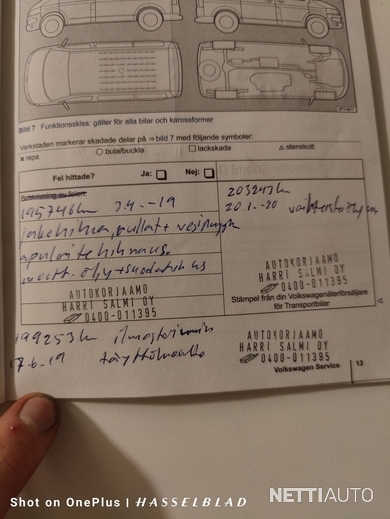 Bild 7 Funktionsskiss: gäller för alla bilar och karossformer
Verkstaden markerar skadade delar på ⇒ bild 7 med följande symboler:
x repa ○ bula/buckla □ lackskada △ stenskott
Fel hittade? Ja: Nej:
Beskrivning av felen:
195746km 3.4.-19
jakohihna, rullat + vesipumppu
apulaitehihnaus
moott. öljy + suodatin
AUTOKORJAAMO
HARRI SALMI OY
0400-011395
203243km
20.1.-20
AUTOKORJAAMO
HARRI SALMI OY
0400-011395
Stämpel från din Volkswagenåterförsäljare
för Transportbilar
199253km ilmastoinnin
17.6.-19
AUTOKORJAAMO
HARRI SALMI OY
0400-011395
Volkswagen Service 13
Shot on OnePlus | HASSELBLAD
NETTIAUTO